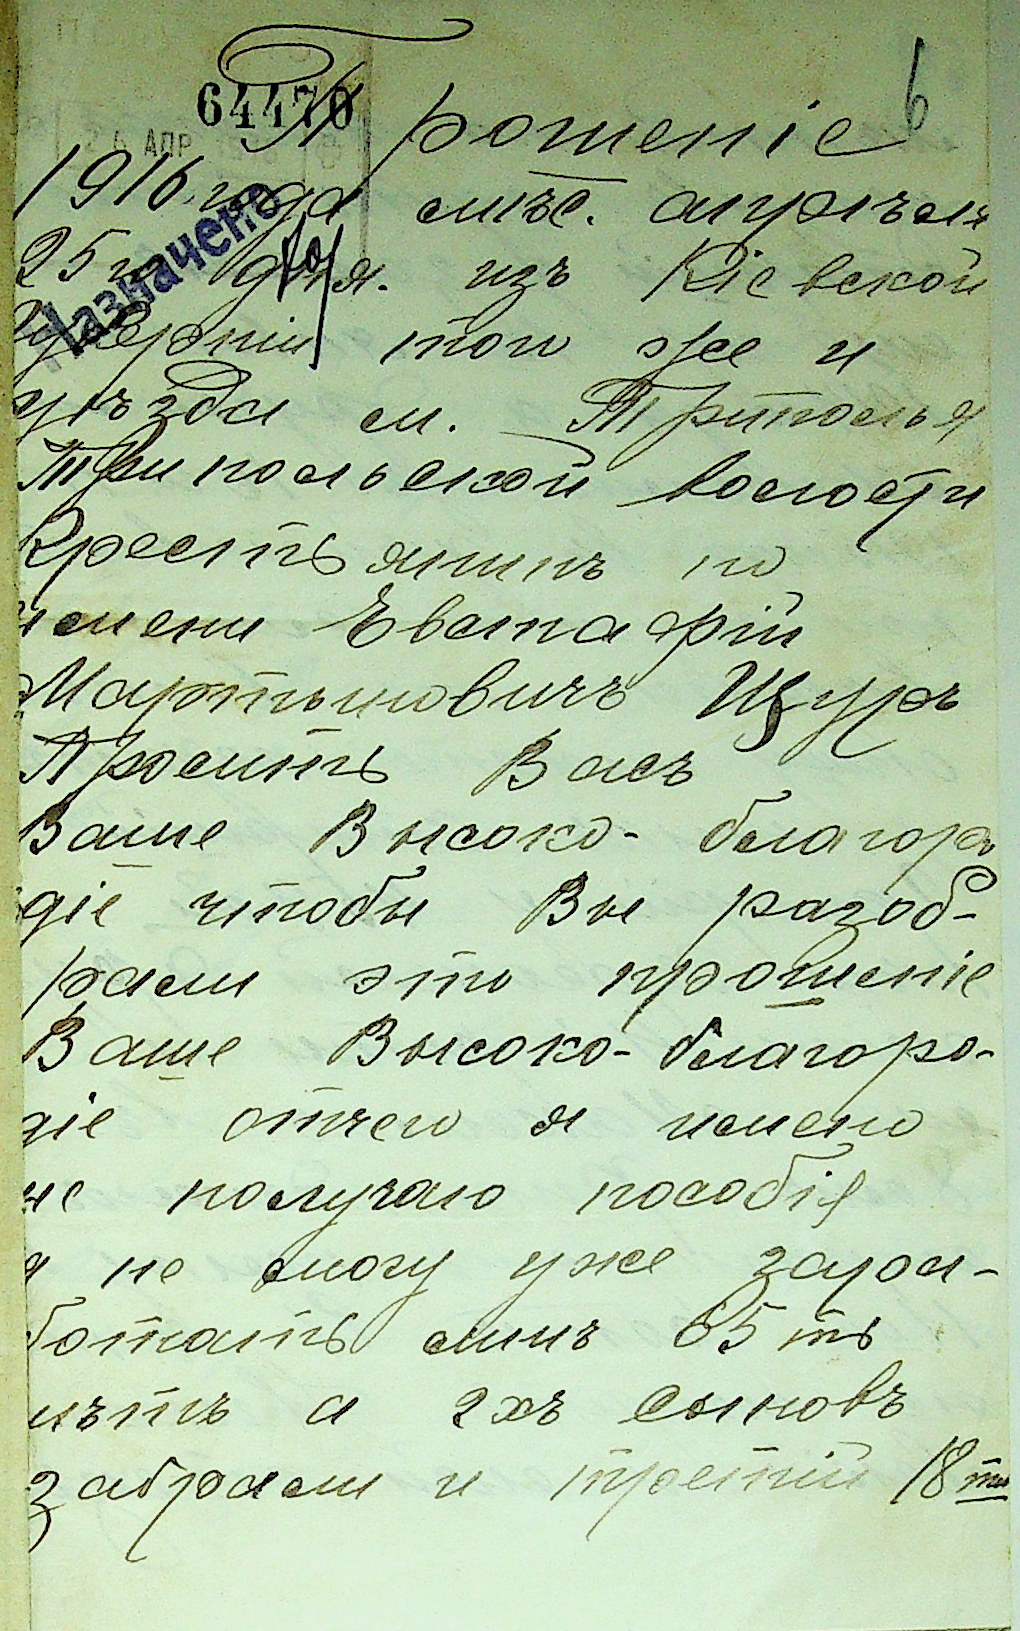 6
64470
24 АПР
Прошеніе
Назначено
1916 года мѣс. апрѣля
25го дня. изъ Кіевской
Губерніи той же и
уѣзда м. Триполья
Трипольской волости
Крестьянинъ по
имени Евстафій
Мартыновичъ Щуръ
Проситъ Васъ
Ваше Высоко- благоро
діе чтобы Вы разоб-
рали это прошеніе
Ваше Высоко- благоро-
діе отчего я имено
не получаю пособія
я не могу уже зара-
ботать мнѣ 65 ть
лѣтъ а 2хъ сыновъ
забрали и третій 18ти